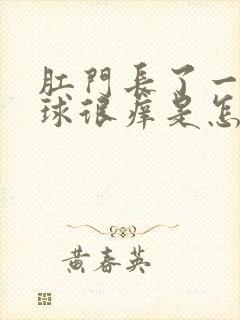 肛門長了一
球很痒是怎
黄春英